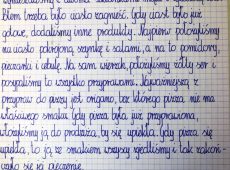 Potem trzeba było ciasto zagnieść. Gdy ciasto było już
gotowe, dodaliśmy inne produkty. Najpierw położyliśmy
na ciasto pokrojoną szynkę i salami, a na to pomidory,
pieczarki i cebulę. Na sam wierzch położyliśmy żółty ser i
posypaliśmy to wszystko przyprawami. Najważniejszą z
przypraw do pizzy jest oregano, bez którego pizza, nie ma
właściwego smaku. Gdy pizza była już przyprawiona,
włożyliśmy ją do prodiża, by się upiekła. Gdy pizza się
upiekła, to ją ze smakiem wszyscy zjedliśmy i tak zakoń-
czyło się jej pieczenie.